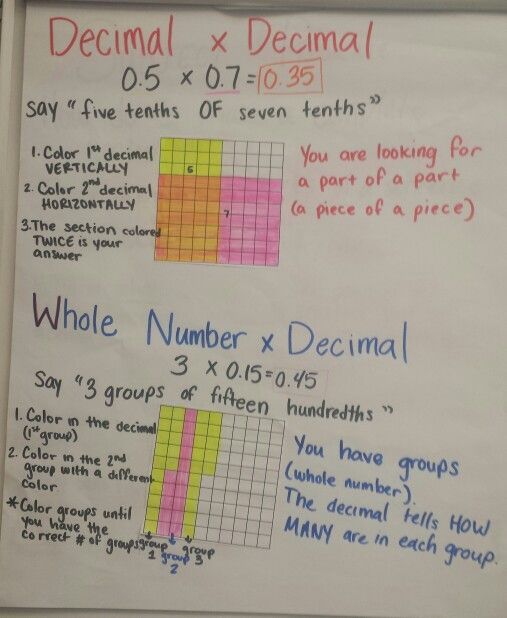 Decimal x Decimal
0.5 x 0.7 = 0.35
Say "five tenths OF seven tenths"
1. Color 1st decimal
VERTICALLY
2. Color 2nd decimal
HORIZONTALLY
3. The section colored
TWICE is your
answer
5
7
You are looking for
a part of a part
(a piece of a piece)
Whole Number x Decimal
3 x 0.15 = 0.45
Say "3 groups of fifteen hundredths"
1. Color in the decimal
(1st group)
2. Color in the 2nd
group with a different
color.
*Color groups until
you have the
correct # of groups
group
1
group
2
group
3
You have groups
(whole number).
The decimal tells HOW
MANY are in each group.